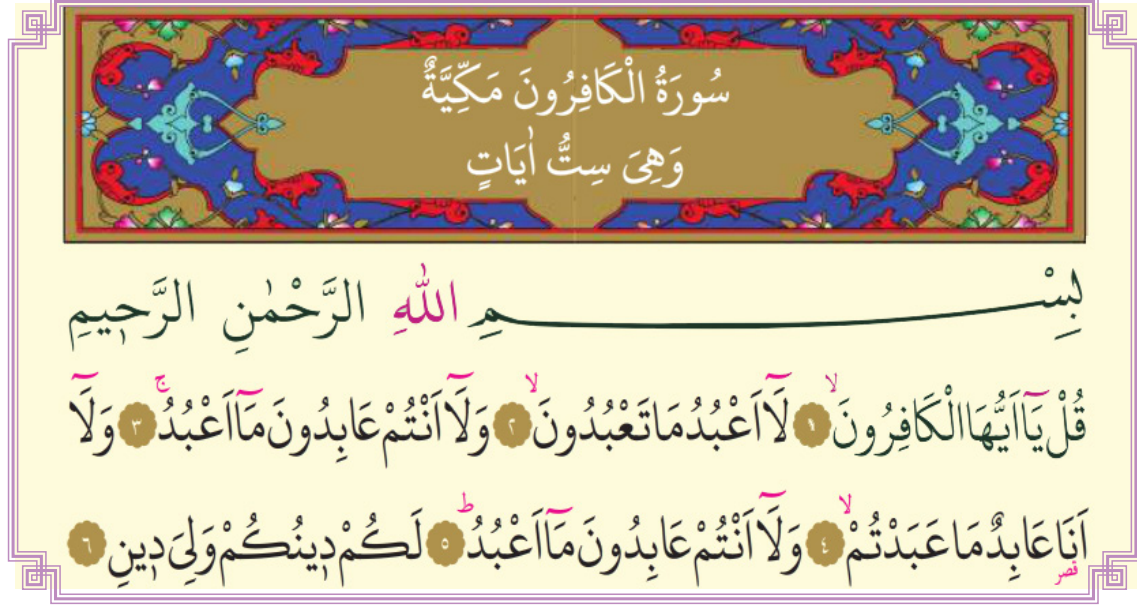 سُورَةُ الْكَافِرُونَ مَكِّيَّةٌ
وَهِىَ سِتُّ اٰيَاتٍ
بِسْمِ اللّٰهِ الرَّحْمٰنِ الرَّحٖيمِ
قُلْ يَٓا اَيُّهَا الْكَافِرُونَۙ ﴿١﴾ لَٓا اَعْبُدُ مَا تَعْبُدُونَۙ ﴿٢﴾ وَلَٓا اَنْتُمْ عَابِدُونَ مَٓا اَعْبُدُۚ ﴿٣﴾ وَلَٓا
اَنَا۬ عَابِدٌ مَا عَبَدْتُمْۙ ﴿٤﴾ وَلَٓا اَنْتُمْ عَابِدُونَ مَٓا اَعْبُدُۜ ﴿٥﴾ لَكُمْ دٖينُكُمْ وَلِىَ دٖينِ ﴿٦﴾
قصر